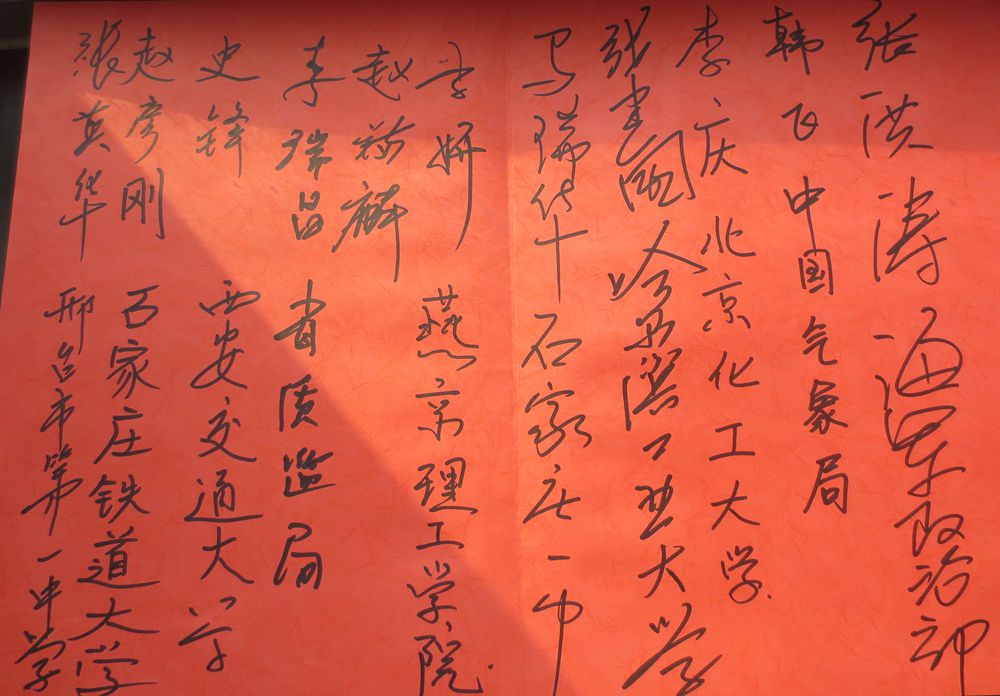 张洪涛 海军政治部
韩飞 中国气象局
李庆 北京化工大学
张建国 哈尔滨工业大学
马瑞华 石家庄一中
李妍 燕京理工学院
赵麟
李瑞昌 省质监局
史锋 西安交通大学
赵彦刚 石家庄铁道大学
張英华 邢台市第一中学